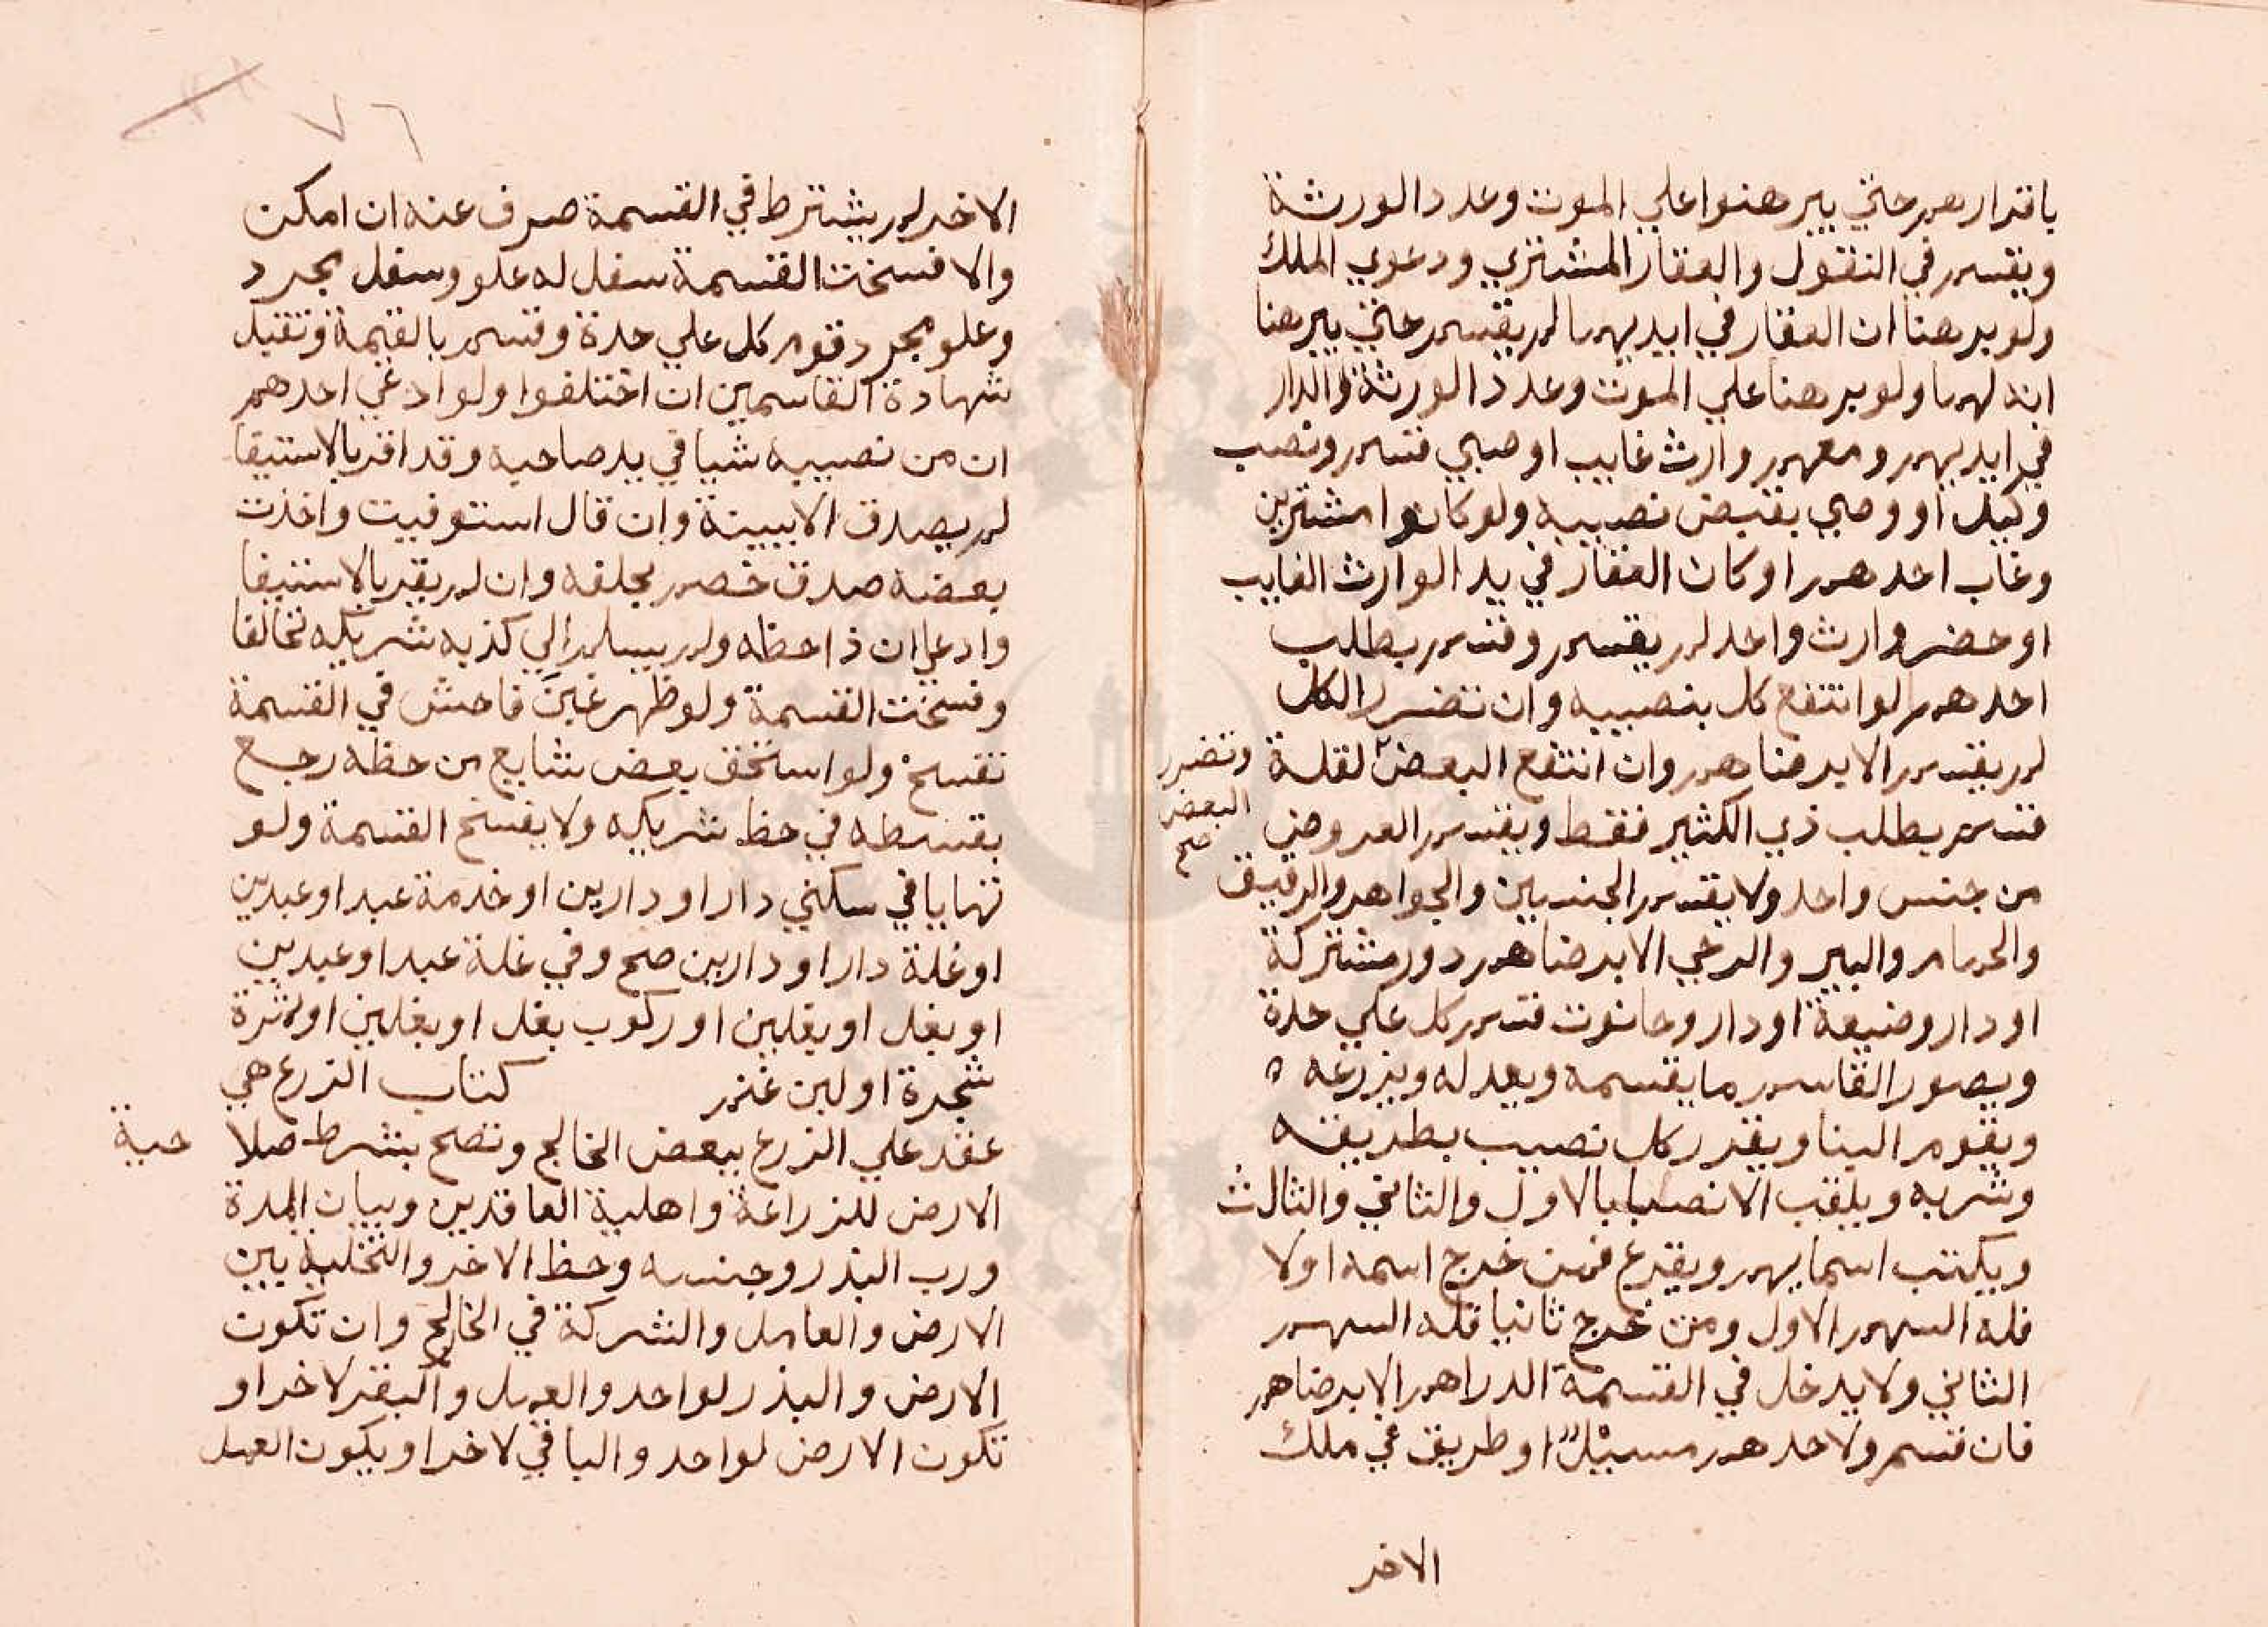 باقرارهم حتي يبرهنوا علي الموت وعدد الورثة
ويقسم في النقول والعقار المشتري ودعوي الملك
ولو برهنا ان العقار في ايديهما لم يقسم حتي يبرهنا
انه لهما ولو برهنا علي الموت وعدد الورثة والدار
في ايديهم ومعهم وارث غايب او صبي قسم ونصب
وكيل او وصي يقبض نصيبه ولو كانوا مشترين
وغاب احدهم او كان العقار في يد الوارث الغايب
او حضر وارث واحد لم يقسم وقسم بطلب
احدهم لو انتفع كل بنصيبه وان تضرر الكل
لم يقسم الا برضاهم وان انتفع البعض لقلة
وتضرر
البعض
صح
قسم بطلب ذي الكثير فقط ويقسم العروض
من جنس واحد ولا يقسم الجنسين والجواهر والرقيق
والحمام والبير والرحي الا برضاهم دور مشتركة
او دار وضيعة او دار وحانوت قسم كل علي حدة
ويصور القاسم ما يقسمه ويعدله ويذرعه ه
ويقوم البنا ويفرز كل نصيب بطريقه
وشربه ويلقب الانصبا بالاول والثاني والثالث
ويكتب اسمايهم ويقرع فمن خرج اسمه اولا
فله السهم الاول ومن خرج ثانيا فله السهم
الثاني ولا يدخل في القسمة الدراهم الا برضاهم
فان قسم ولاحدهم مسيل او طريق في ملك
الاخر
٧٦
الاخر لم يشترط في القسمة صرف عنه ان امكن
والا فسخت القسمة سفل له علو وسفل مجرد
وعلو مجرد قوم كل علي حدة وقسم بالقيمة وتقبل
شهادة القاسمين ان اختلفوا ولو ادعي احدهم
ان من نصيبه شيا في يد صاحبه وقد اقر بالاستيفا
لم يصدق الا ببينة وان قال استوفيت واخذت
بعضه صدق خصم بحلفه وان لم يقر بالاستيفا
وادعي ان ذا حظه ولم يسلم الي كذبه شريكه تحالفا
وفسخت القسمة ولو ظهر غبن فاحش في القسمة
تفسخ ولو استحق بعض شايع من حظه رجع
بقسطه في حظ شريكه ولا يفسخ القسمة ولو
تهايا في سكني دار او دارين او خدمة عبد او عبدين
او غلة دار او دارين صح وفي غلة عبد او عبدين
او بغل او بغلين او ركوب بغل او بغلين او ثمرة
شجرة او لبن غنم كتاب الزرع هي
عقد علي الزرع ببعض الخارج وتصح بشرط صلا
حية
الارض للزراعة واهلية العاقدين وبيان المدة
ورب البذر وجنسه وحظ الاخر والتخلية بين
الارض والعامل والشركة في الخارج وان تكون
الارض والبذر لواحد والعمل والبقر لاخر او
تكون الارض لواحد والباقي لاخر او يكون العمل